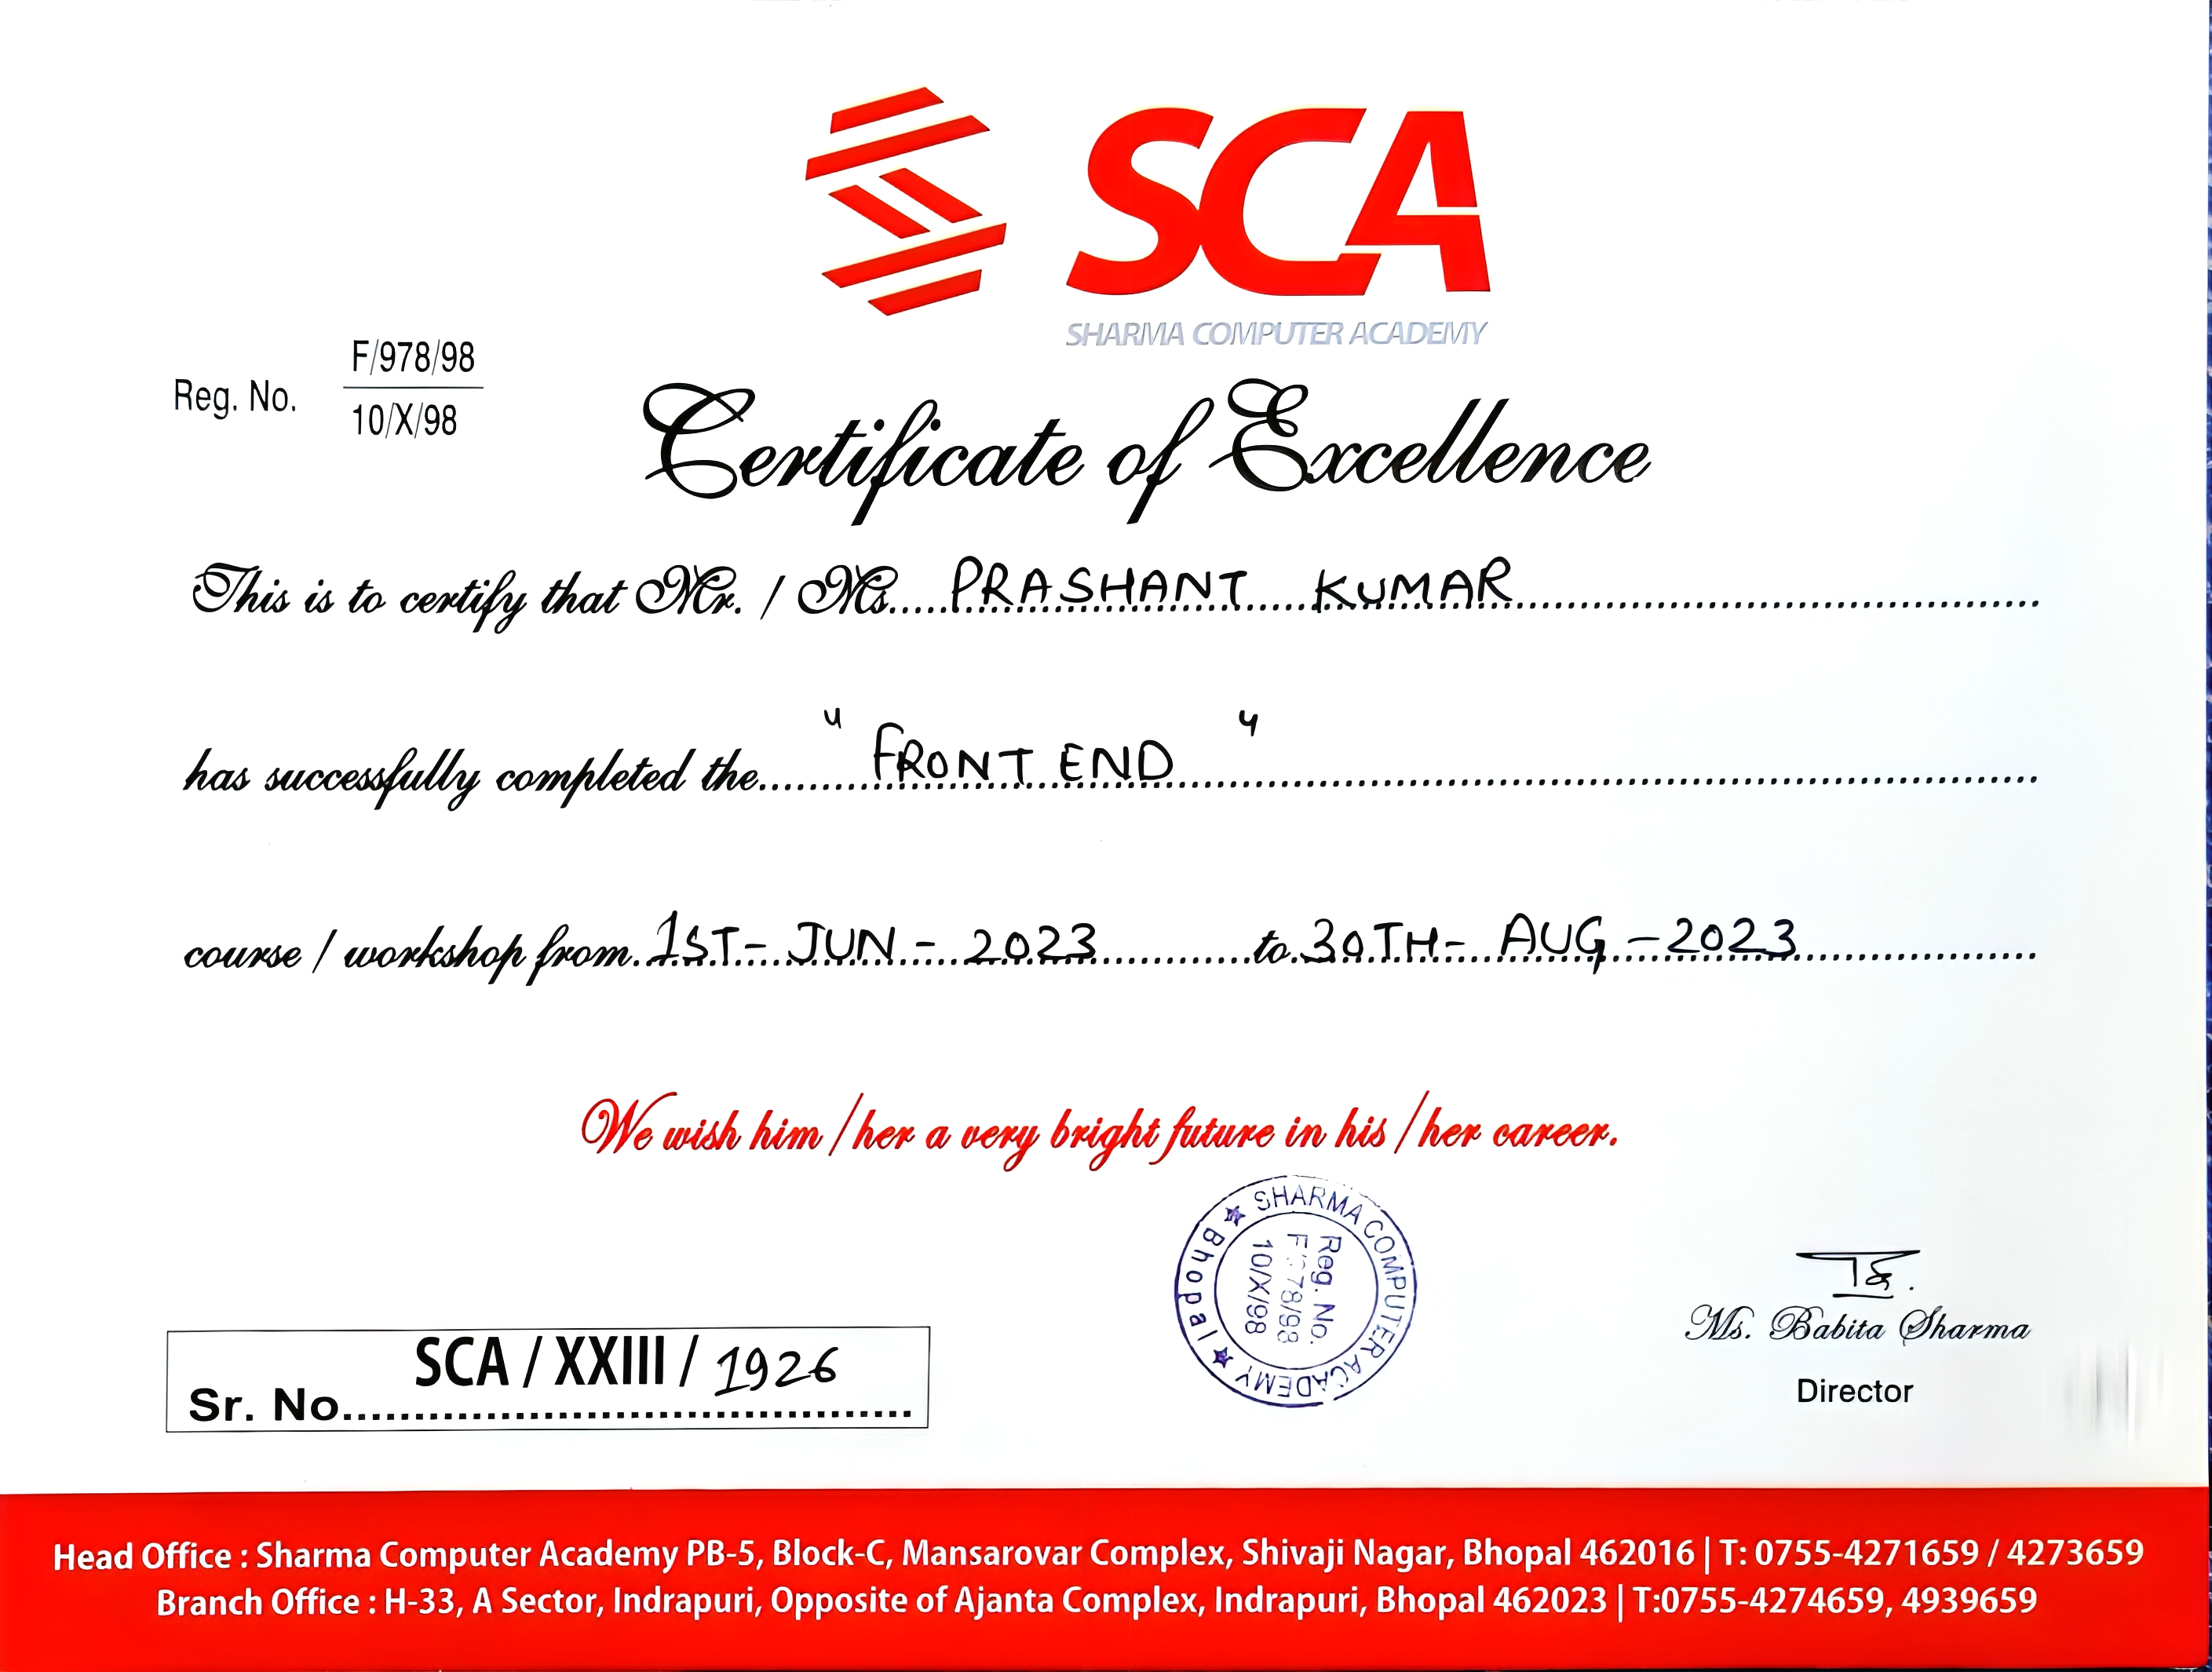 SCA
SHARMA COMPUTER ACADEMY
Reg. No. F/978/98
10/X/98
Certificate of Excellence
This is to certify that Mr. / Ms..... PRASHANT KUMAR
has successfully completed the...... " FRONT END "
course / workshop from 1ST - JUN - 2023 to 30TH - AUG - 2023
We wish him /her a very bright future in his /her career.
SHARMA COMPUTER ACADEMY ★ Bhopal ★
Reg. No.
F/978/98
10/X/98
Ms. Babita Sharma
Director
SCA / XXIII / 1926
Sr. No........................................
Head Office : Sharma Computer Academy PB-5, Block-C, Mansarovar Complex, Shivaji Nagar, Bhopal 462016 | T: 0755-4271659 / 4273659
Branch Office : H-33, A Sector, Indrapuri, Opposite of Ajanta Complex, Indrapuri, Bhopal 462023 | T:0755-4274659, 4939659